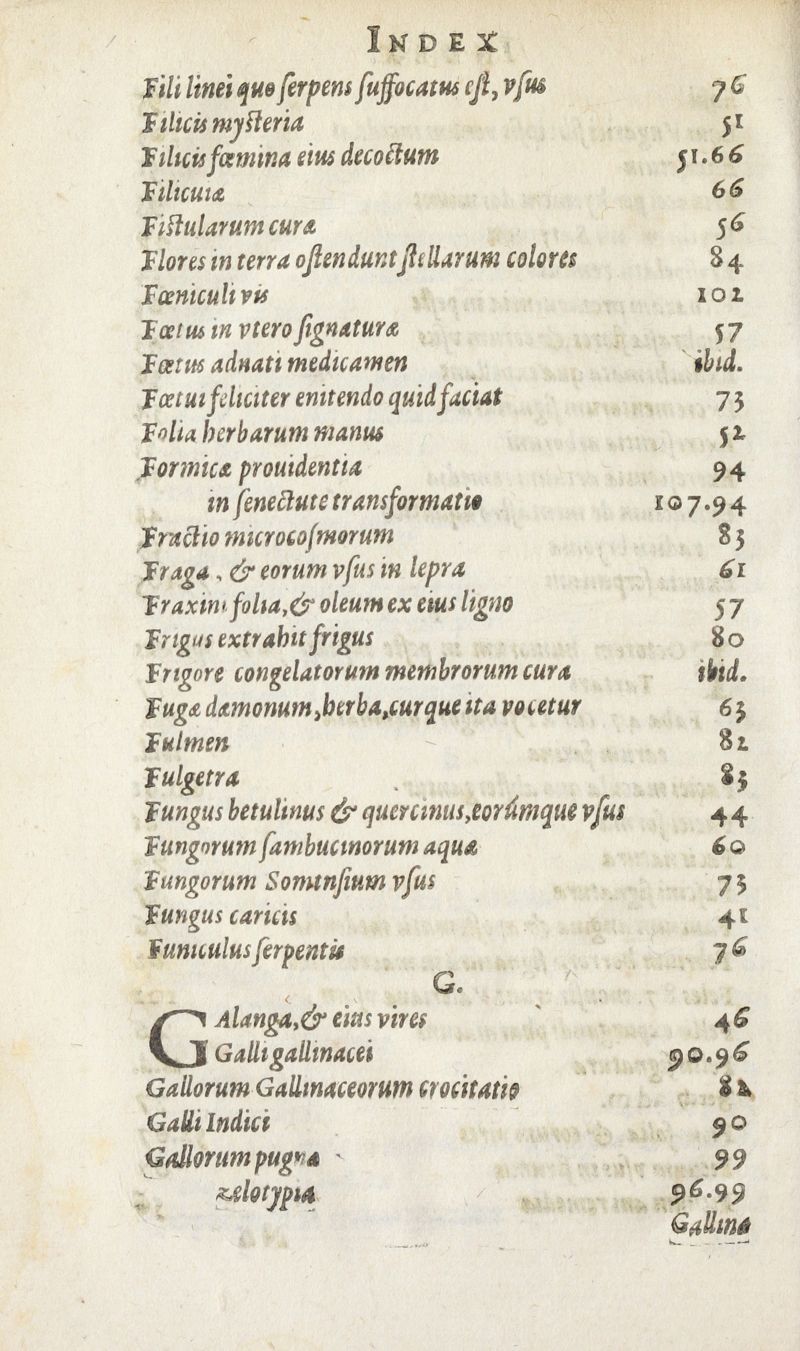 INDEX
Fili linei quo ſerpens ſuffocatus eſt, vſus 76
Filicis myſteria 51
Filicis fœmina eius decoctum 51.66
Filicula 66
Fiſtularum cura 56
Flores in terra oſtendunt ſtellarum colores 84
Fœniculi vis 102
Fœtus in vtero ſignaturæ 57
Fœtus adnati medicamen ibid.
Fœtui feliciter enitendo quid faciat 73
Folia herbarum manus 52
Formicæ prouidentia 94
in ſenectute transformatio 107.94
Fractio microcoſmorum 83
Fraga, & eorum vſus in lepra 61
Fraxini folia, & oleum ex eius ligno 57
Frigus extrahit frigus 80
Frigore congelatorum membrorum cura ibid.
Fuga dæmonum, herba, cur que ita vocetur 63
Fulmen 82
Fulgetra 83
Fungus betulinus & quercinus, eorúmque vſus 44
Fungorum ſambucinorum aqua 60
Fungorum vſus 73
Fungus caricis 41
Funiculus ſerpentis 76
G.
GAlanga, & eius vires 46
Galli gallinacei 90.96
Gallorum Gallinaceorum crocitatio 82
Galli Indici 90
Gallorum pugna 99
zelotypia 96.99
Gallina